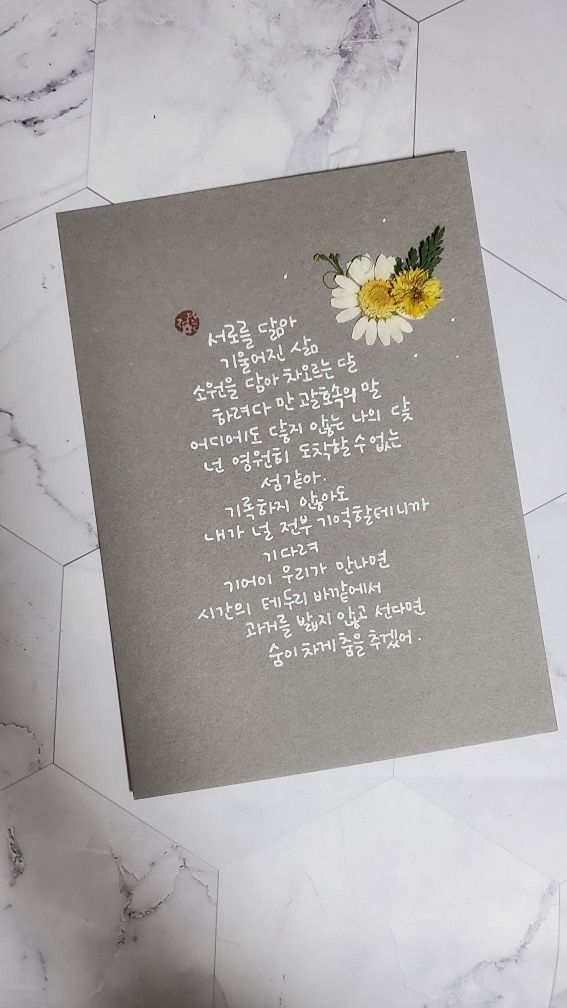 서로를 닮아
기울어진 삶
소원을 담아 차오르는 달
하려다 만 괄호속의 말
어디에도 닿지 않는 나의 닻
넌 영원히 도착할 수 없는
섬 같아.
기록하지 않아도
내가 널 전부 기억할테니까
기다려
기어이 우리가 만나면
시간의 테두리 바깥에서
과거를 밟지 않고 선다면
숨이 차게 춤을 추겠어.